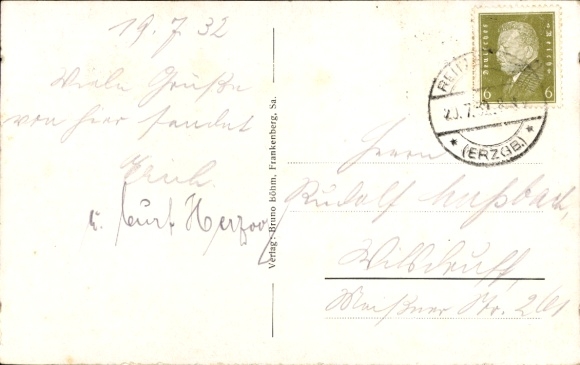 19.7.32
Viele Grüße
von hier sendet
u. Curt Herzog
Verlag: Bruno Böhm, Frankenberg, Sa.
Deutsches Reich
6 6
20.7.32
* (ERZGB.) *
Herrn
Rudolf
Wilsdruff,
Meißner Str. 261